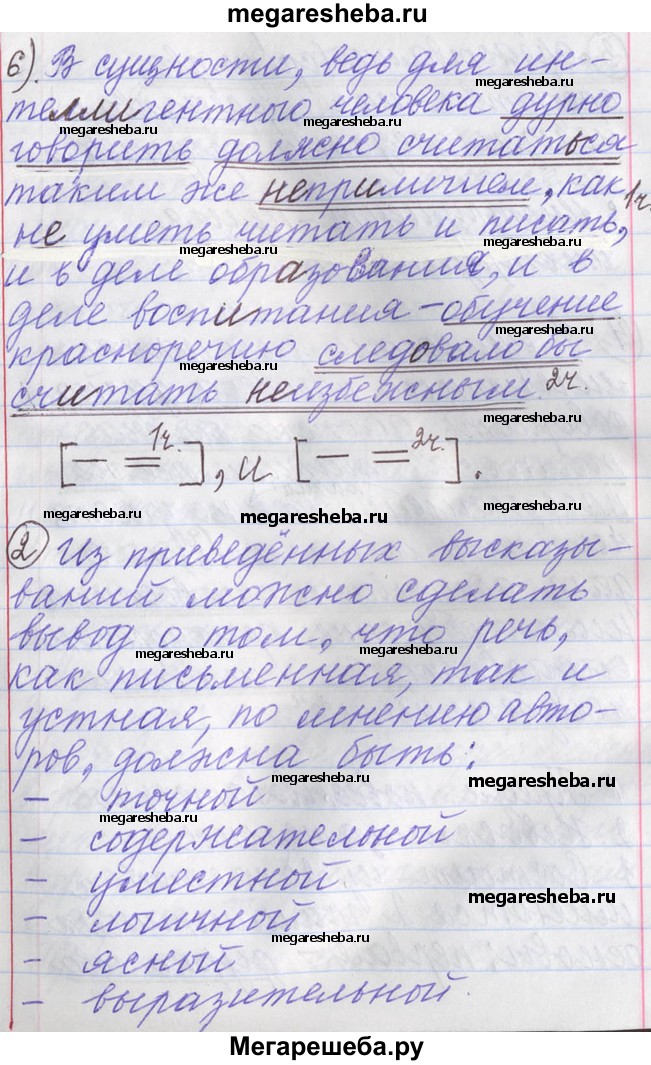 megaresheba.ru
6). В сущности, ведь для ин-
megaresheba.ru
теллигентного человека дурно
megaresheba.ru
megaresheba.ru
говорить должно считаться
таким же неприличием, как 1ч.
не уметь читать и писать,
megaresheba.ru
megaresheba.ru
и в деле образования, и в
деле воспитания – обучение
megaresheba.ru
красноречию следовало бы
megaresheba.ru
считать неизбежным. 2ч.
megaresheba.ru
[— = 1ч.], и [— = 2ч.].
megaresheba.ru
megaresheba.ru
megaresheba.ru
2 Из приведённых высказы-
ваний можно сделать
вывод о том, что речь,
megaresheba.ru
megaresheba.ru
как письменная, так и
устная, по мнению авто-
ров, должна быть:
megaresheba.ru
– точной
megaresheba.ru
– содержательной
– уместной
megaresheba.ru
– логичной
megaresheba.ru
– ясный
– выразительной.
Мегарешеба.ру